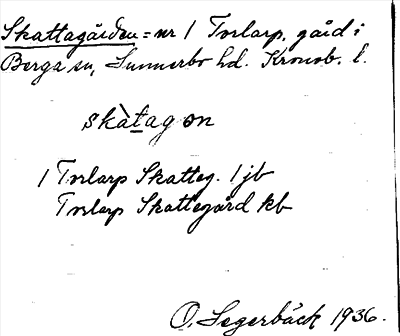 Skattagården = nr 1 Torlarp, gård i
Berga sn, Sunnerbo hd. Kronob. l.
skàtag on
1 Torlarp Skatteg. 1 jb
Torlarp Skattegård kb
O. Segerbäck 1936.